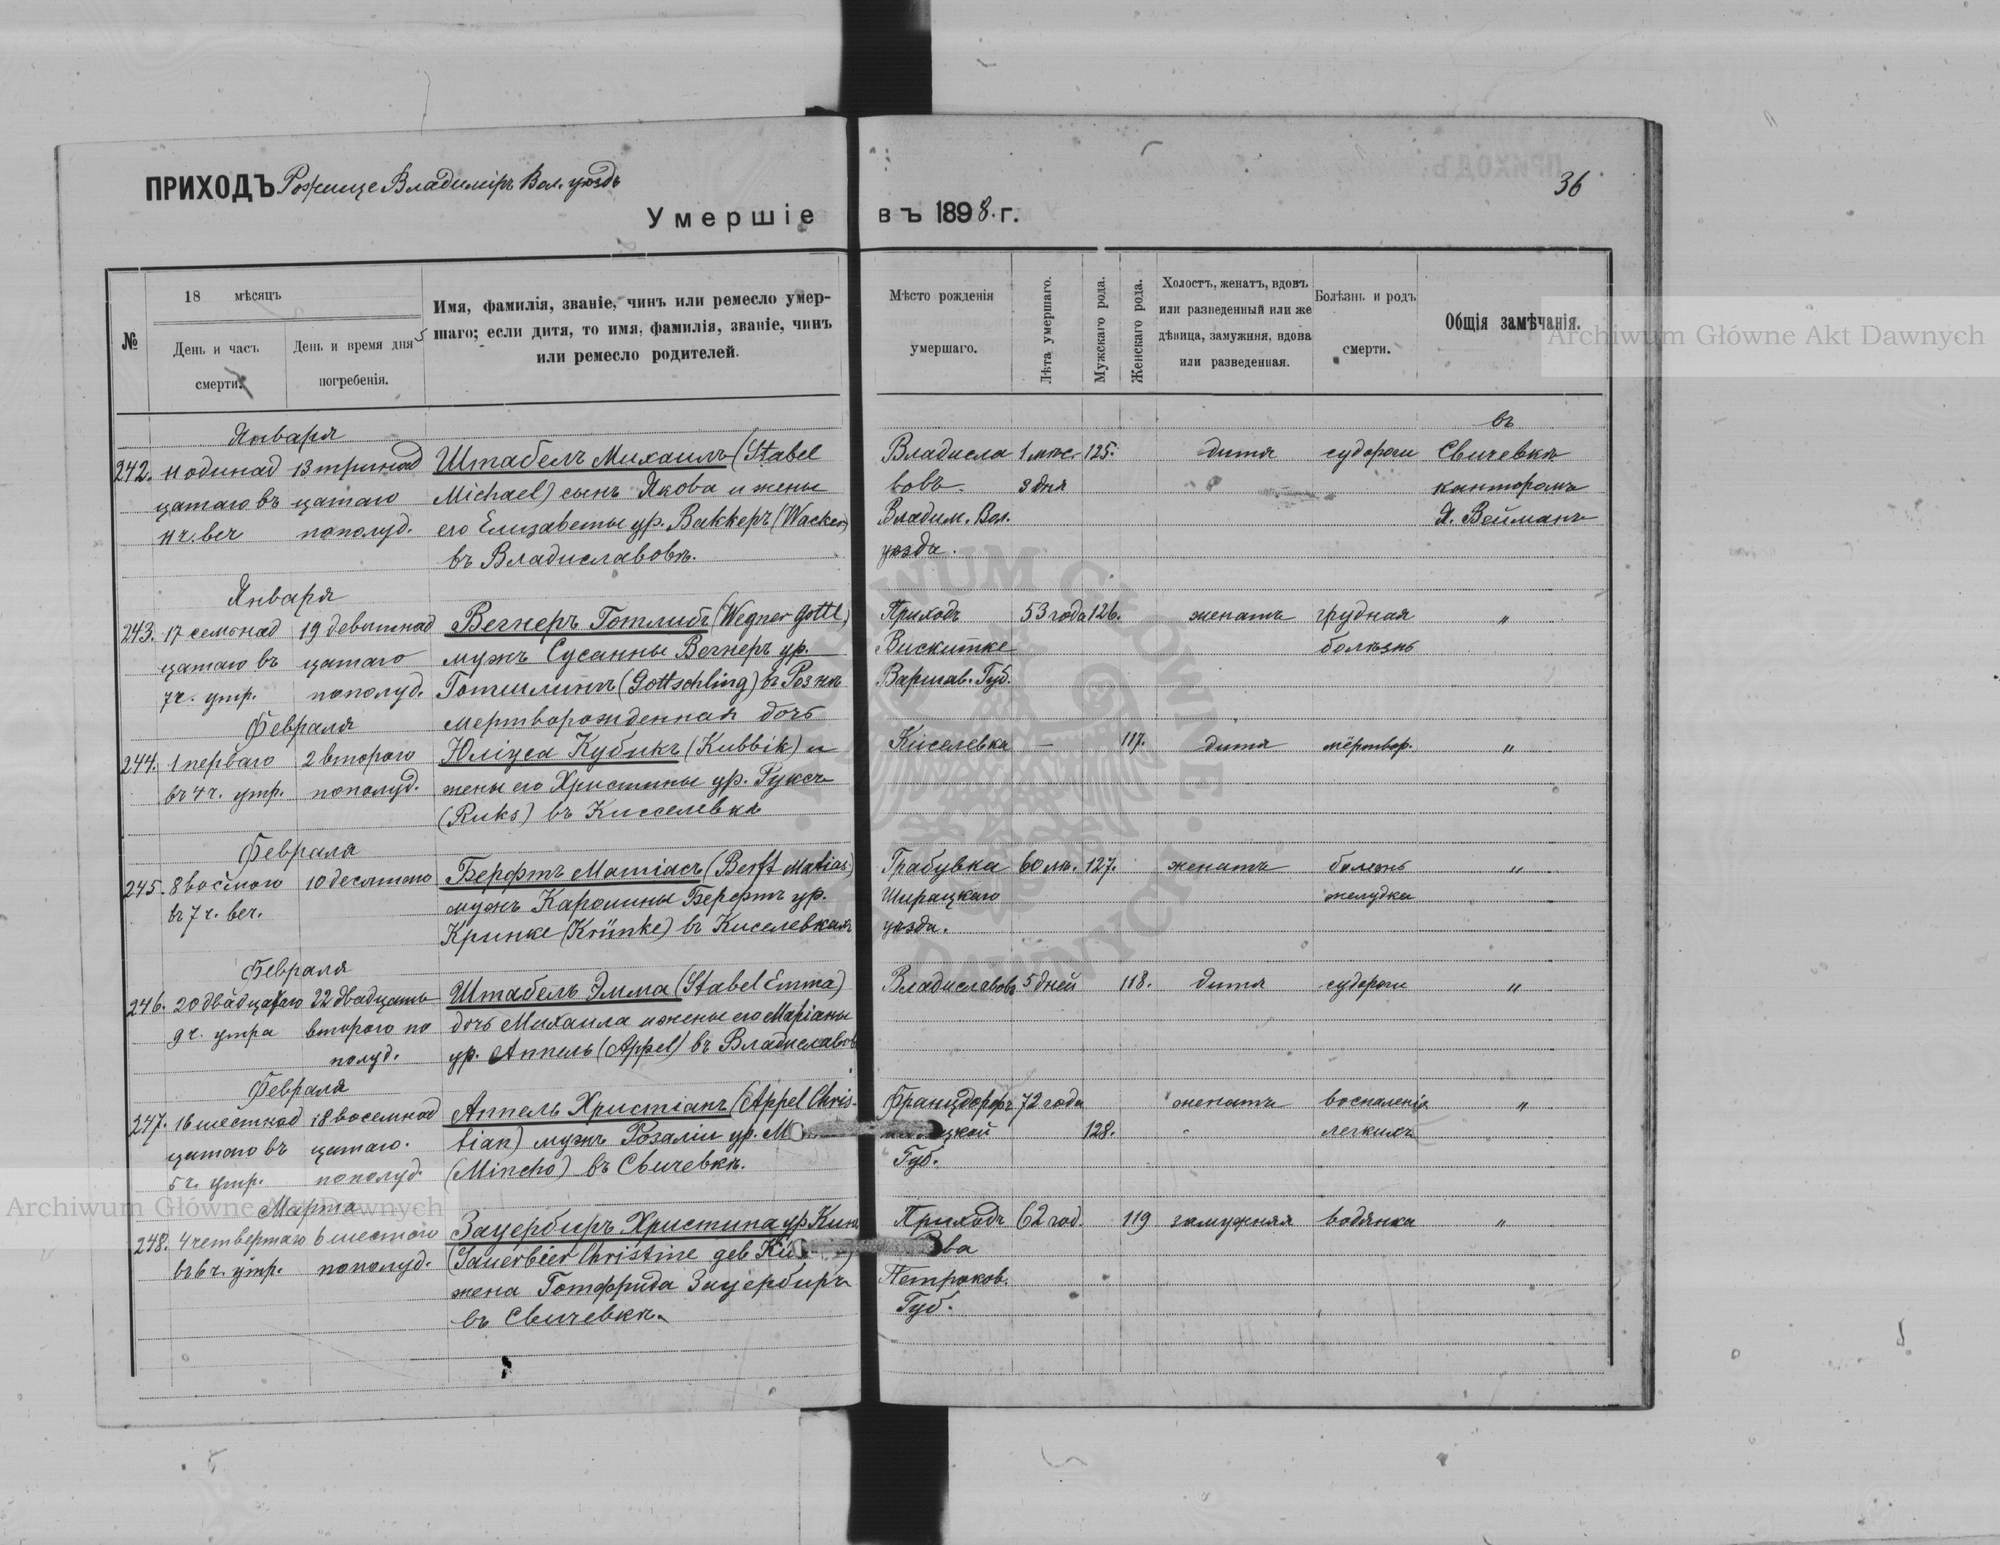 ПРИХОДЪ Рожище Владимір Вол. уѣздъ
36
Умершіе въ 1898. г.
№
18 мѣсяцъ
День и часъ смерти.
День и время дня погребенія.
Имя, фамилія, званіе, чинъ или ремесло умер-
шаго; если дитя, то имя, фамилія, званіе, чинъ
или ремесло родителей.
Мѣсто рожденія
умершаго.
Лѣта умершаго.
Мужскаго рода.
Женскаго рода.
Холостъ, женатъ, вдовъ
или разведенный или же
дѣвица, замужняя, вдова
или разведенная.
Болѣзнь и родъ
смерти.
Общія замѣчанія.
Archiwum Główne Akt Dawnych
Января въ
242. 11 одинад 13 тринад Штабель Михаилъ (Stabel Владисла 1 мѣс. 125. дитя судороги Свичевкѣ
цатаго въ цатаго Michael) сынъ Якова и жены вовъ. 3 дня канторомъ
11 ч. веч пополуд. его Елизаветы ур. Ваккеръ (Wacker) Владим. Вол. Я. Вейманъ
въ Владиславовѣ. уѣзда.
Января
243. 17 семьнад 19 девятенад Вегнеръ Готлибъ (Wegner Gottl) Приходъ 53 года 126. женатъ грудная "
цатаго въ цатаго мужъ Сусанны Вегнеръ ур. Вискитке болѣзнь
7 ч. утр. пополуд. Готшлингъ (Gottschling) въ Варшав. Губ.
Февраля мертворожденная дочь
244. 1 перваго 2 второго Юліуса Кубикъ (Kubbik) и Киселевка — 117. дитя мёртвор. "
въ 4 ч. утр. пополуд. жены его Христины ур. Руксъ
(Ruks) въ Кисселевкѣ
Февраля
245. 8 восмого 10 десятого Берфтъ Матіасъ (Berft Matias) Грабувка 60 лѣ. 127. женатъ болѣзнь "
въ 7 ч. веч. мужъ Каролины Берфтъ ур. Ширацкаго желудка
Кринке (Krünke) въ Киселевкахъ уѣзда.
Февраля
246. 20 двадцатаго 22 двадцать Штабель Эмма (Stabel Emma) Владиславовъ 5 дней 118. дитя судороги "
9 ч. утра второго по дочь Михаила и жены его Маріаны
полуд. ур. Аппель (Appel) въ Владиславов
Февраля
247. 16 шестнад 18 восемнад Аппель Христіанъ (Appel Chris- Францдорфъ 72 года женатъ воспаленія "
цатаго въ цатаго. tian) мужъ Розаліи ур. М 128. легкихъ
5 ч. утр. пополуд. (Mincho) въ Свичевкѣ. Губ.
Archiwum Główne Akt Dawnych
Марта
248. 4 четвертаго 6 шестого Зауербиръ Христина ур Приходъ 62 год. 119 замужняя водянка "
въ 6 ч. утр. пополуд. (Sauerbier Christine geb
жена Готфрида Зауербиръ Петроков.
въ Свичевкѣ. Губ.
ARCHIWUM GŁÓWNE AKT DAWNYCH